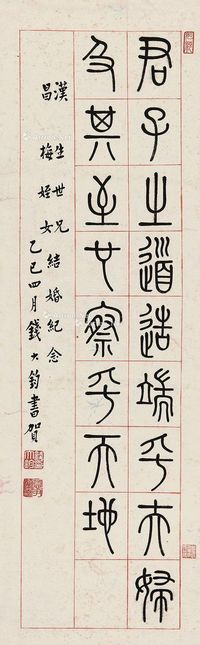 君子之道造端乎夫婦
及其至也察乎天地
漢生世兄
昌梅姪女 結婚紀念
乙巳四月錢大鈞書賀